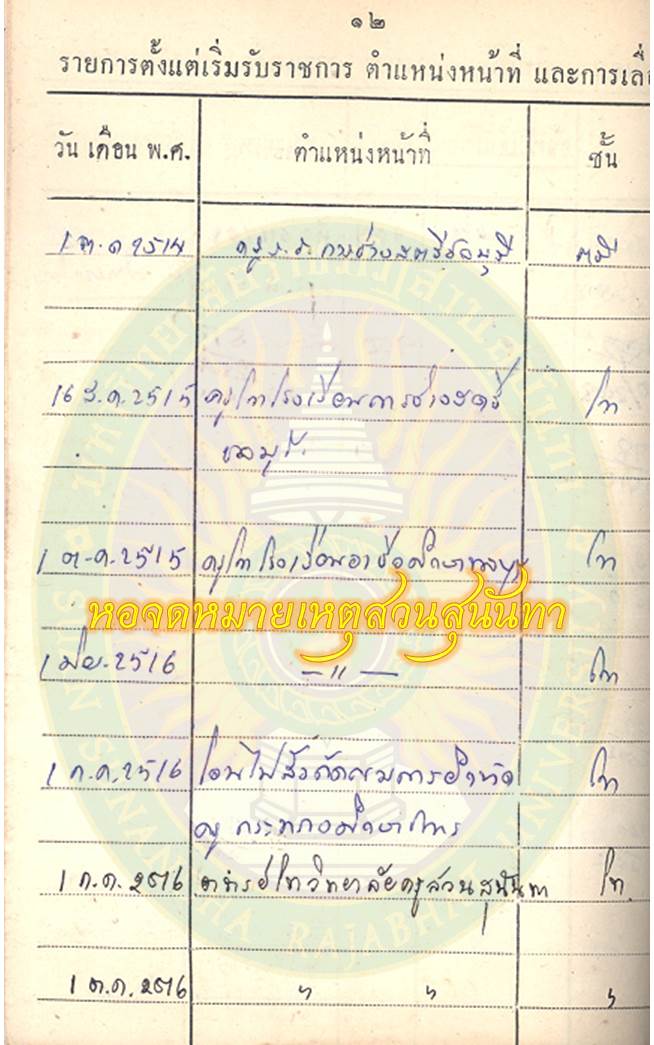 ๑๒
รายการตั้งแต่เริ่มรับราชการ ตำแหน่งหน้าที่ และการเลื่อ
วัน เดือน พ.ศ. ตำแหน่งหน้าที่ ชั้น
1 ต.ค 2514 ครู ร.ร. การช่างสตรีชลบุรี ตรี
16 ส.ค. 2515 ครูโทโรงเรียนการช่างสตรี โท
ชลบุรี
1 ต.ค. 2515 ครูโทโรงเรียนอาชีวศึกษาชลบุรี โท
หอจดหมายเหตุสวนสุนันทา
1 เมย. 2516 — " — โท
1 ก.ค. 2516 โอนไปสังกัดกรมการฝึกหัด โท
ครู กระทรวงศึกษาธิการ
1 ก.ค. 2516 อาจารย์โทวิทยาลัยครูสวนสุนันทา โท
1 ต.ค. 2516 " " "
SUNANDHA RAJABHAT UNIVERSITY